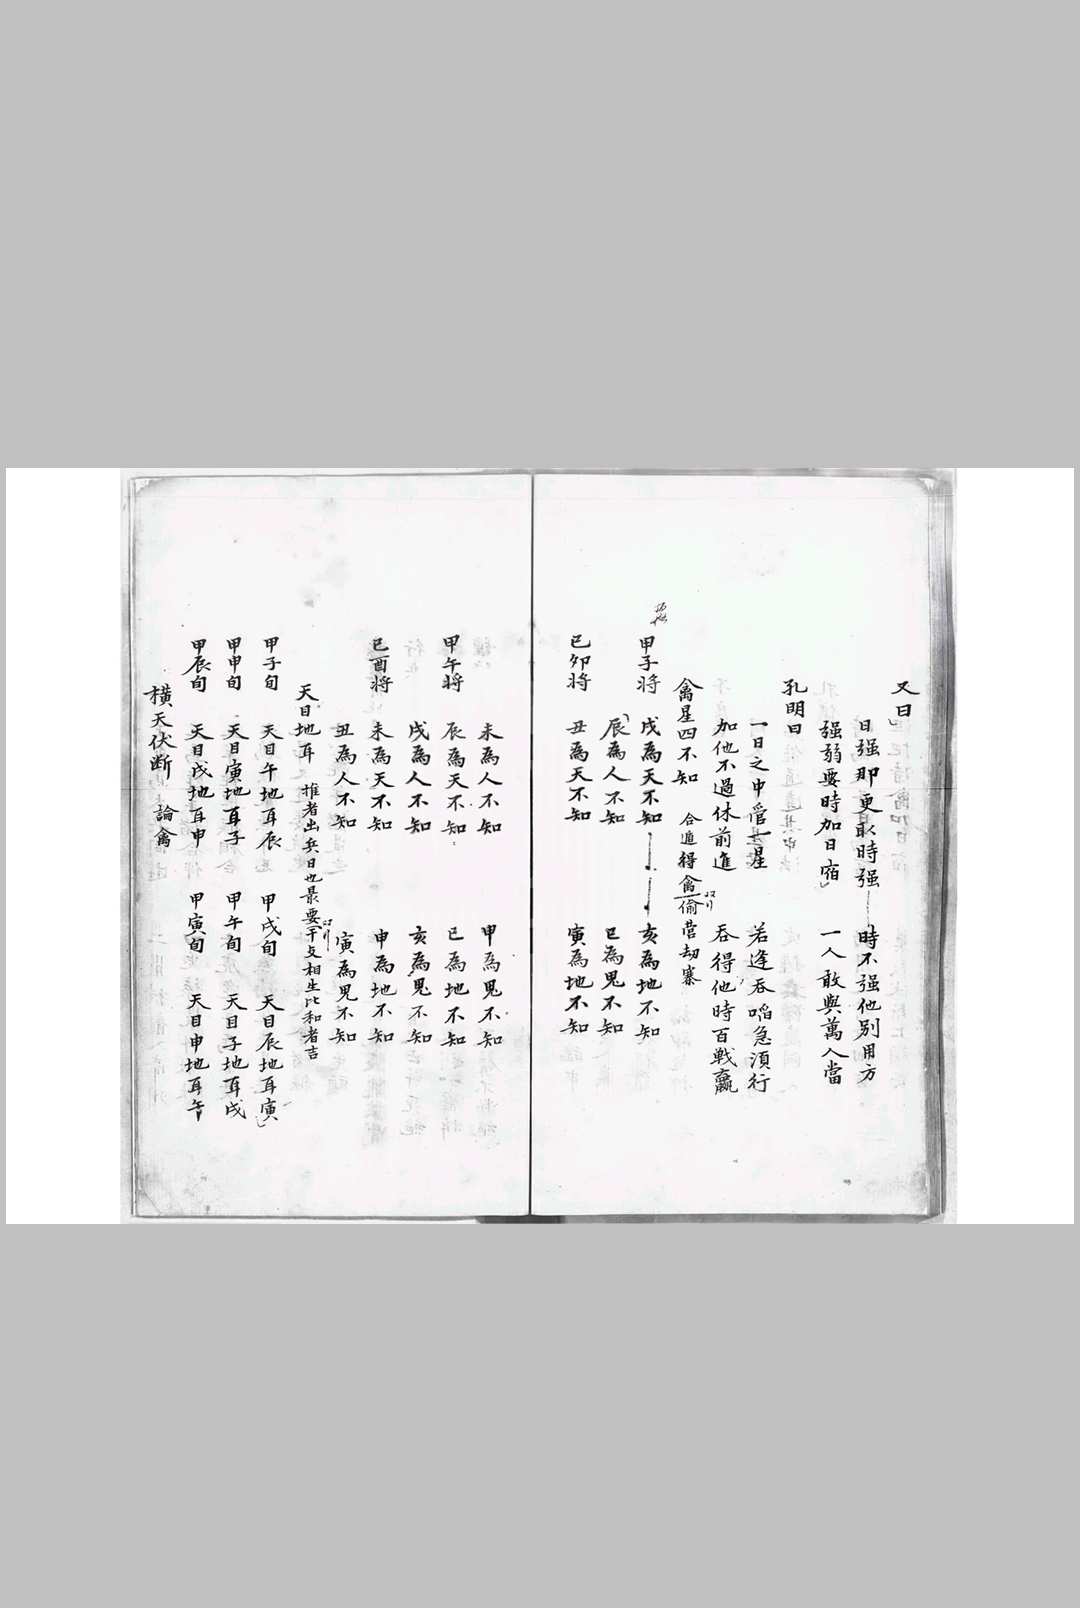 又曰
日强那更取時强 時不强他别用方
强弱要時加日宿 一人敢與萬人當
孔明曰
一日之中管一星 若逢吞啗急須行
加他不過休前進 吞得他時百戰贏
禽星四不知 合遁得禽偷營刼寨
甲子將 戌為天不知 亥為地不知
辰為人不知 巳為鬼不知
己卯將 丑為天不知 寅為地不知
未為人不知 申為鬼不知
甲午將 辰為天不知 巳為地不知
戌為人不知 亥為鬼不知
己酉將 未為天不知 申為地不知
丑為人不知 寅為鬼不知
天目地耳 推者出兵日也最要干支相生比和者吉
甲子旬 天目午地耳辰 甲戌旬 天目辰地耳寅
甲申旬 天目寅地耳子 甲午旬 天目子地耳戌
甲辰旬 天目戌地耳申 甲寅旬 天目申地耳午
橫天伏断 論禽